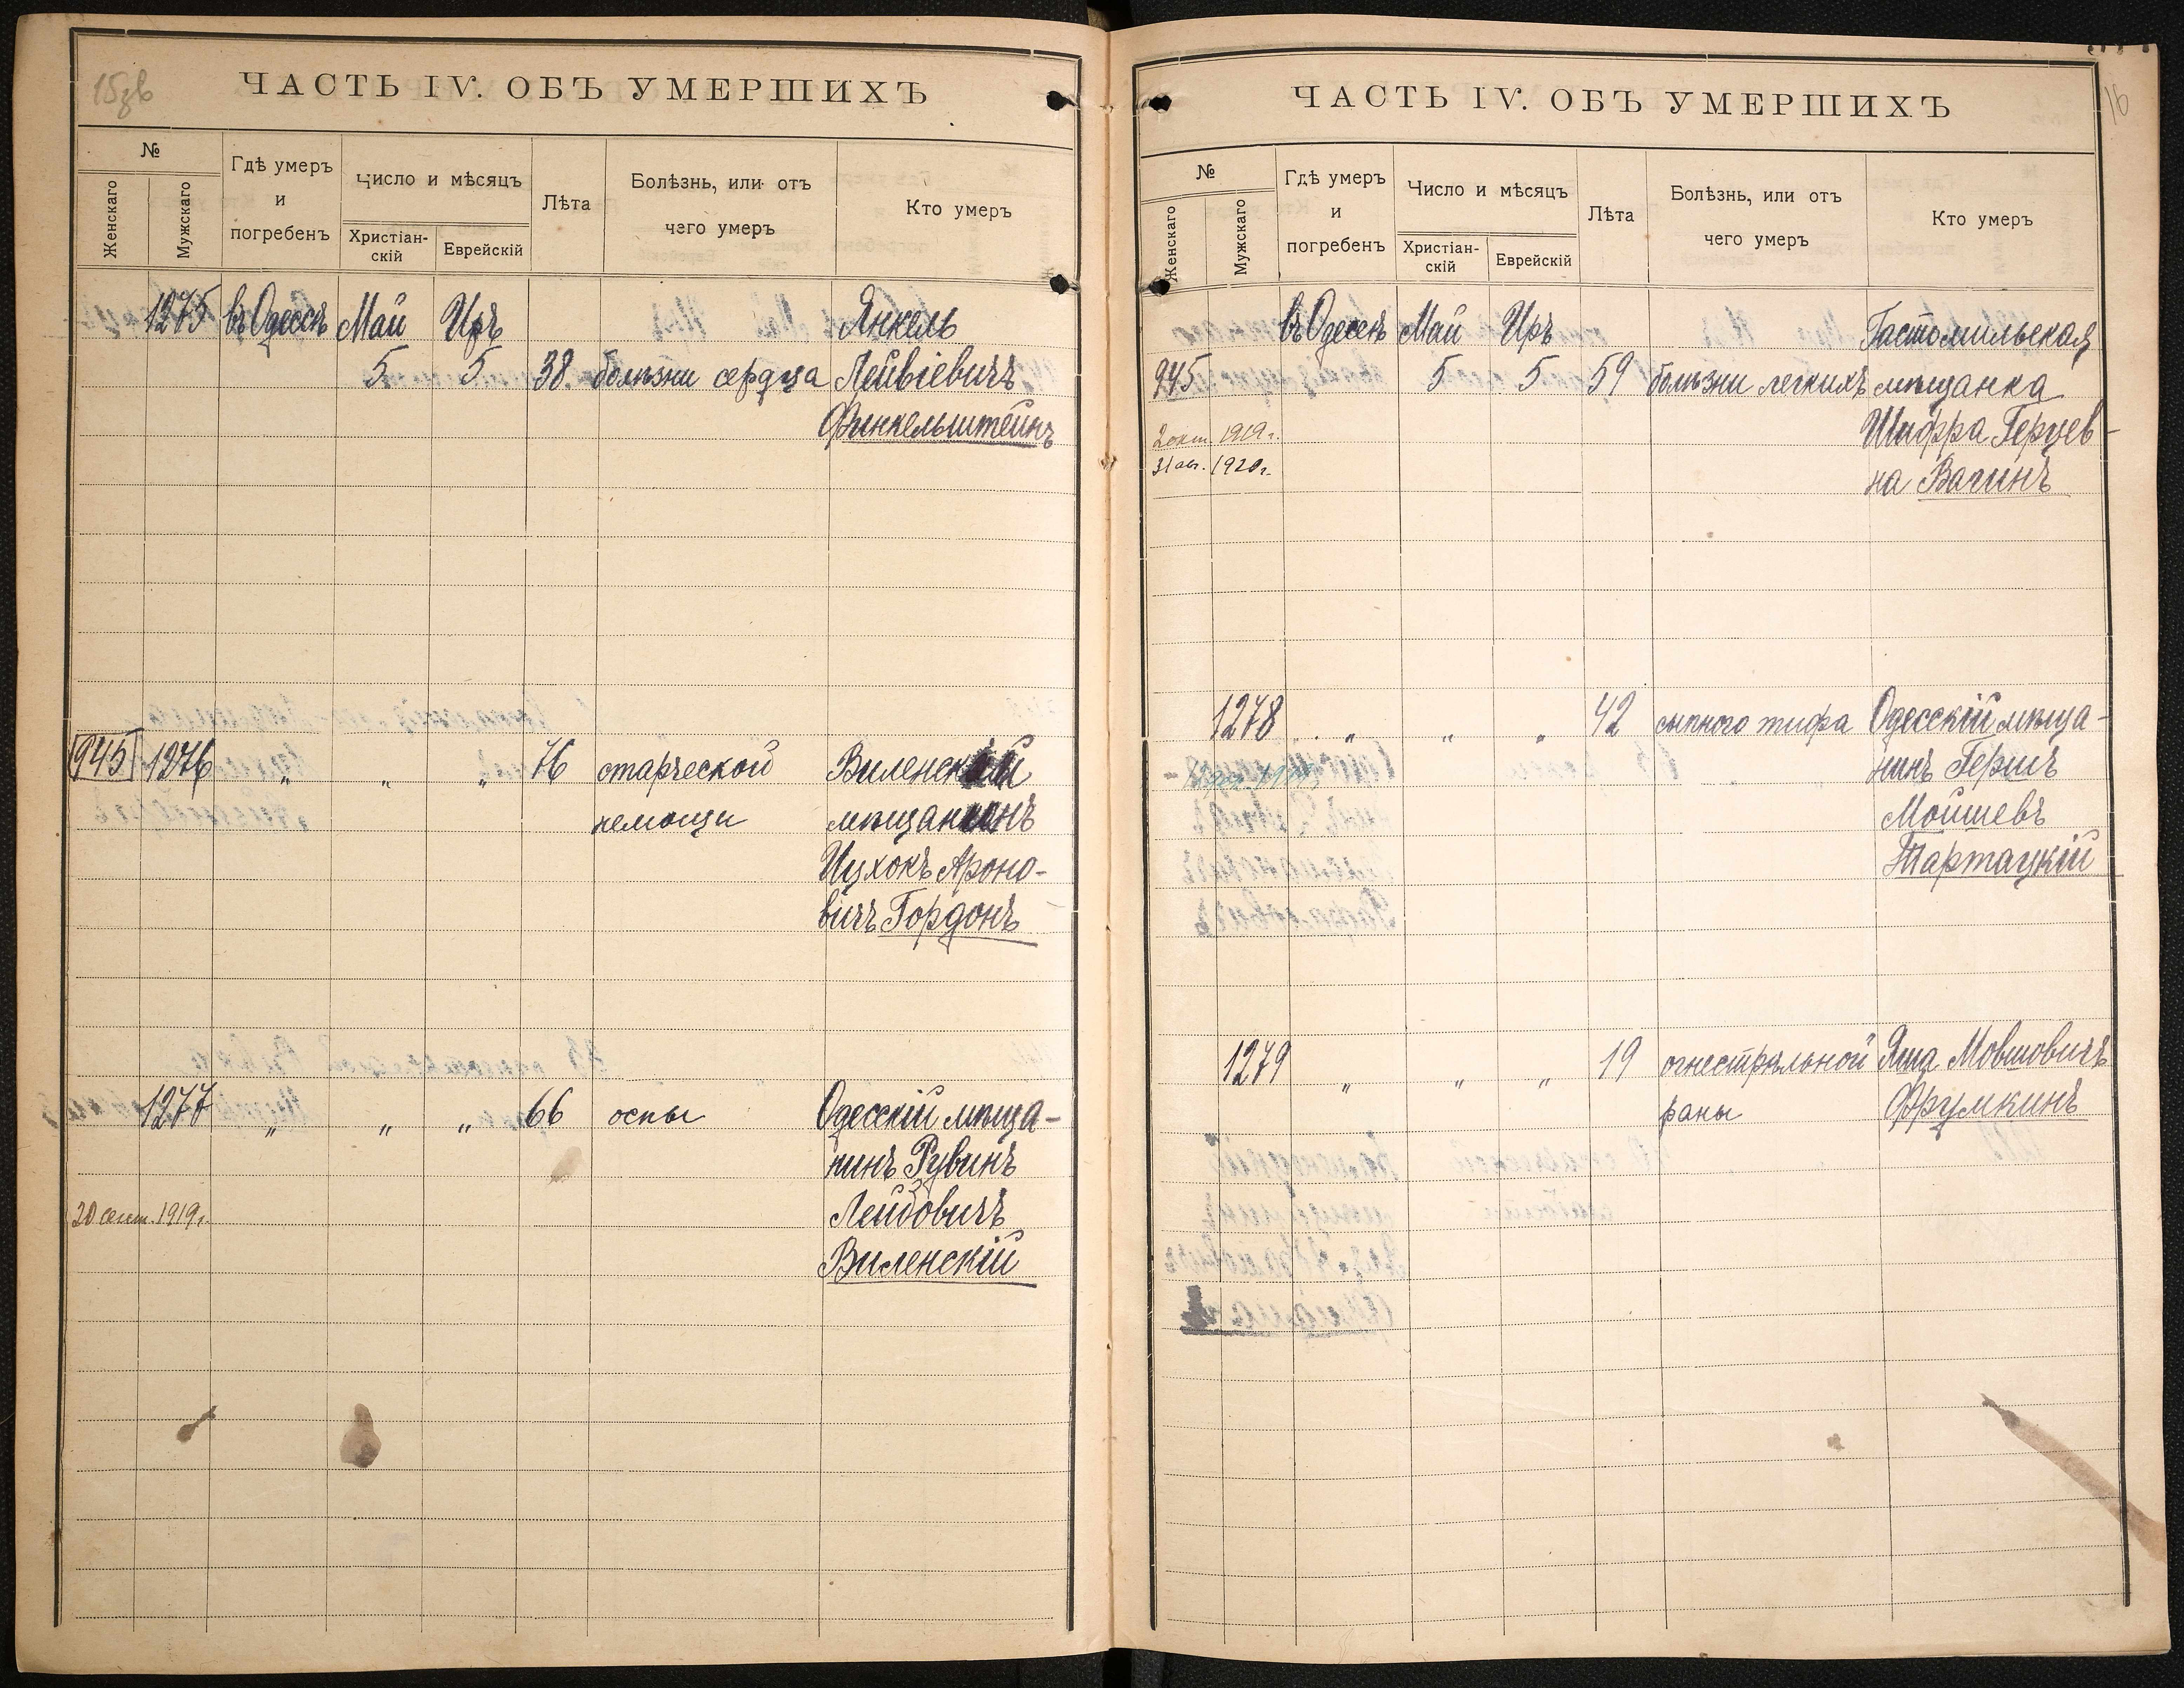 15зв
ЧАСТЬ IV. ОБЪ УМЕРШИХЪ
№
Женскаго
Мужскаго
Гдѣ умеръ
и
погребенъ
Число и мѣсяцъ
Христіан-
скій
Еврейскій
Лѣта
Болѣзнь, или отъ
чего умеръ
Кто умеръ
1275 въ Одессѣ Май Иръ Янкель
5 5 38 болѣзни сердца Лейвіевичъ
Финкельштейнъ
945 1276 " " " 76 старческой Виленскій
немощи мѣщанинъ
Ицхокъ Ароно-
вичъ Гордонъ
1277 " " " 66 оспы Одесскій мѣща-
нинъ Рувинъ
20 сент. 1919г. Лейбовичъ
Виленскій
16
ЧАСТЬ IV. ОБЪ УМЕРШИХЪ
№
Женскаго
Мужскаго
Гдѣ умеръ
и
погребенъ
Число и мѣсяцъ
Христіан-
скій
Еврейскій
Лѣта
Болѣзнь, или отъ
чего умеръ
Кто умеръ
въ Одессѣ Май Иръ Гостомильская
945 5 5 59 болѣзни легкихъ мѣщанка
2 окт. 1919г. Шифра Герцев-
31 авг. 1920г. на Вагинъ
1278 " " " 42 сыпного тифа Одесскій мѣща-
нинъ Гершъ
Мойшевъ
Тартацкій
1279 " " " 19 огнестрѣльной Яша Мовшовичъ
раны Фрумкинъ